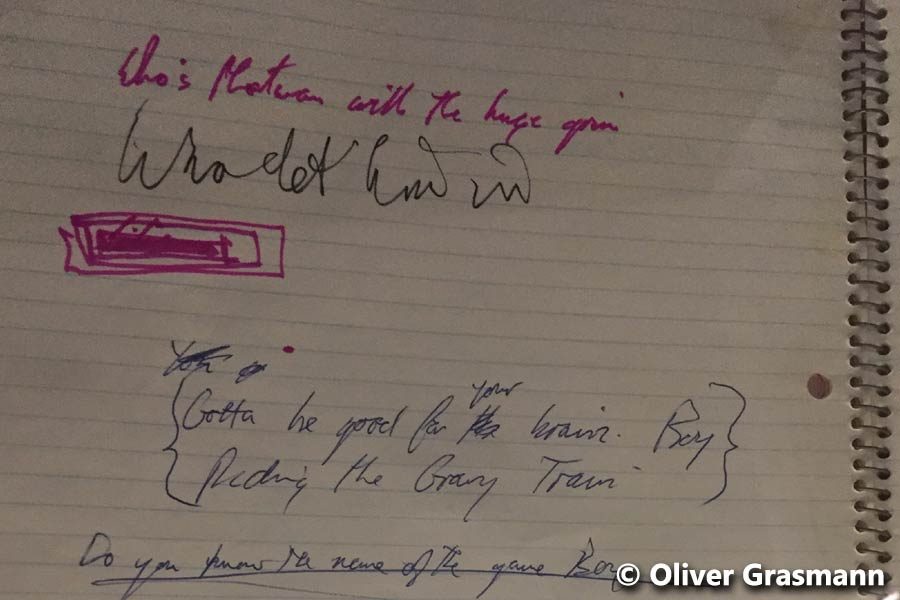 Who's That man with the huge grin
Who let him in
Gotta be good for your brain. Boy
Riding the Gravy Train
Do you know the name of the game Boy
© Oliver Grasmann